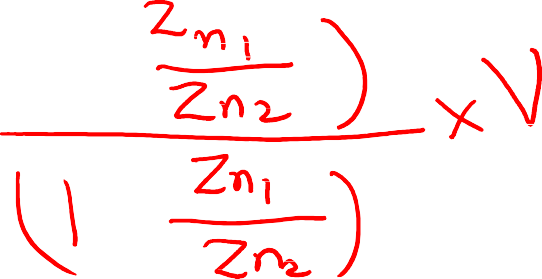 Zn1
Zn2 )
× V
( 1 Zn1
Zn2 )